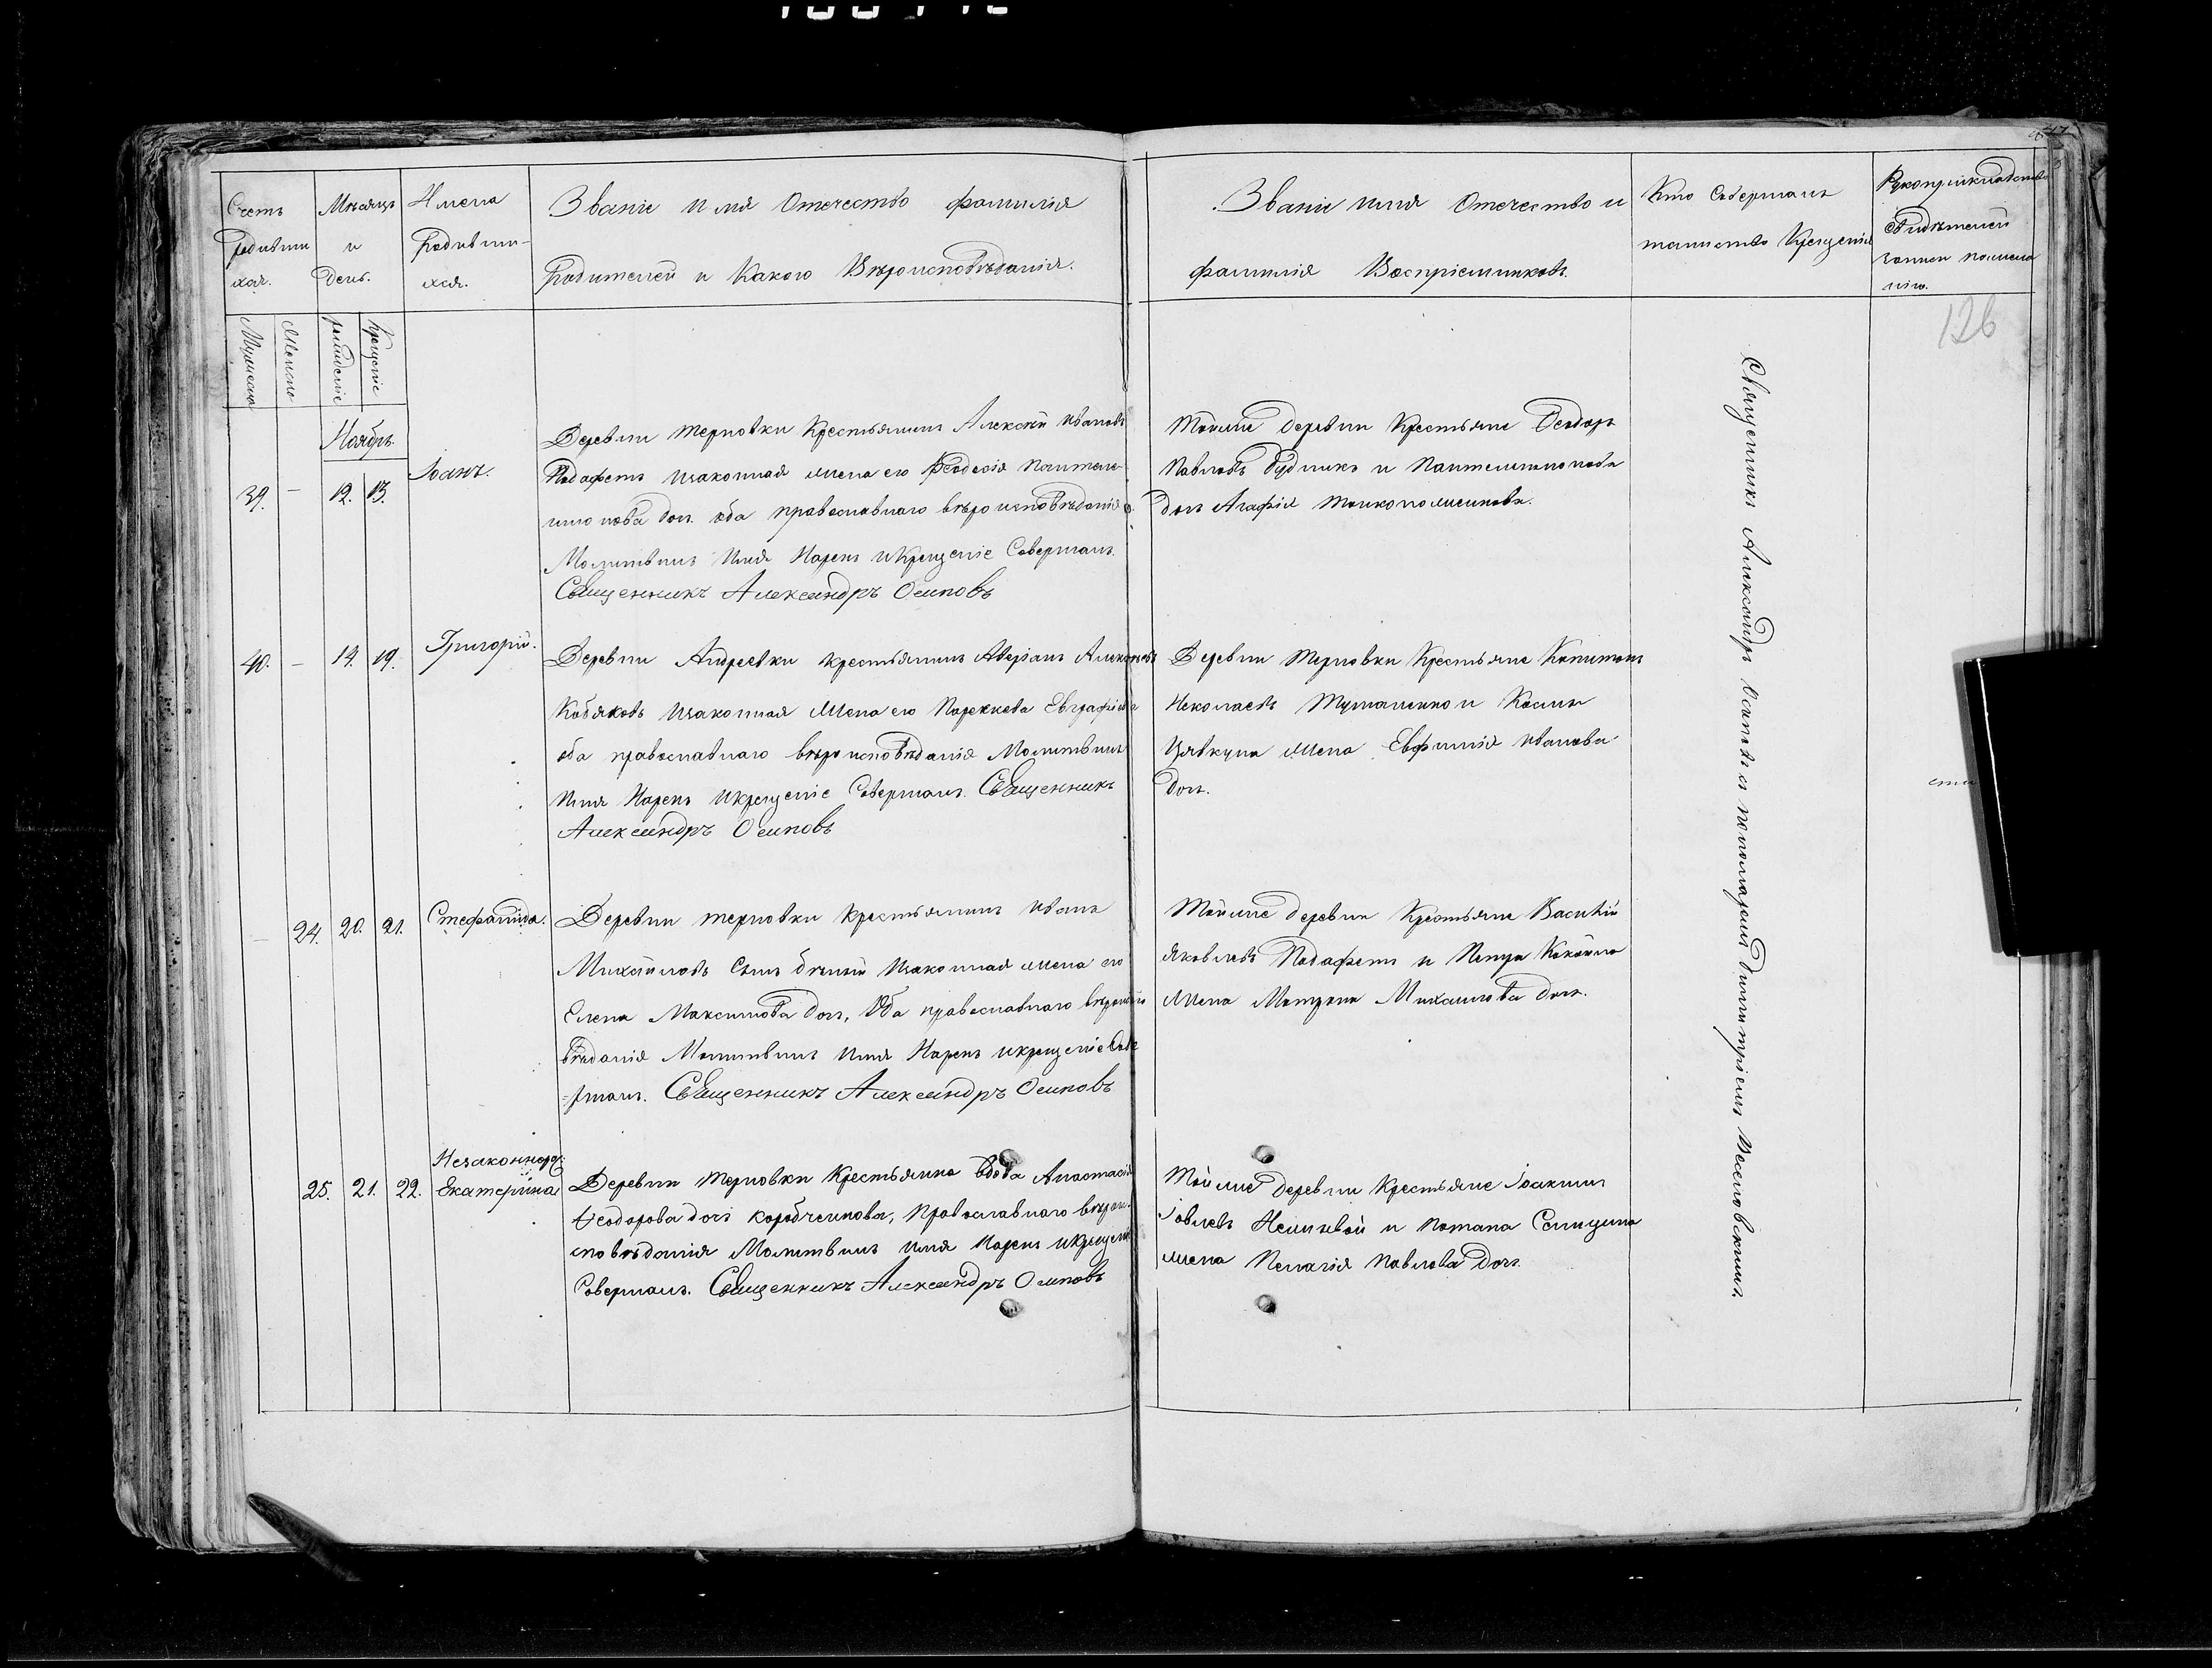 Счетъ
родивши
хся.
Мѣсяцъ
и
день.
Имена
родивши-
хся.
Званіе имя Отечество фамилія
родителей и Какого Вѣроисповѣданія.
Званіе имя Отечество и
фамилія Воспріемниковъ.
Кто Совершалъ
таинство Крещенія
Рукоприкладство
свидѣтелей
записи по жела
нію.
Мужеска
Женска
рожденіе
крещеніе
126
Ноябрь.
39.
—
12. 13.
Іоанъ.
Деревни терновки Крестьянинъ Алексѣй Ивановъ
Подафетъ изаконная жена его Феодосія Пантеле-
имонова доч. оба православнаго вѣроисповѣданія
Молитвилъ Имя Нарекъ и Крещеніе Совершалъ.
Священникъ Александръ Осиповъ
Тойже деревни Крестьяне Феодоръ
Павловъ Будникъ и Пантелеимонова
дочь Агафія
40.
—
14. 19.
Григорій.
Деревни Андреевки крестьянинъ Аверіанъ Алексѣевъ
Кобяковъ изаконная Жена его Парекева Евграфіева
оба православнаго вѣроисповѣданія Молитвилъ
Имя Нарекъ икрещеніе Совершалъ. Священникъ
Александръ Осиповъ
Деревни Терновки Крестьяне Капитонъ
Николаевъ и Космы
Жена Евфимія Иванова
доч.
—
24. 20. 21.
Стефанида.
Деревни терновки крестьянинъ Иванъ
Михайловъ Сынъ бѣлый Изаконная жена его
Елена Максимова доч, Оба православнаго вѣроиспо
вѣданія Молитвилъ Имя Нарекъ икрещеніе Сове
=ршалъ. Священникъ Александръ Осиповъ
Тойже деревни Крестьяне Василій
Яковлевъ Подафетъ и Петра
Жена Матрона Михаилова доч.
25. 21. 22.
Незаконнор:
Екатерина
Деревни Терновки Крестьянка вдова Анастасія
Феодорова дочь Коробчеикова, Православнаго вѣрои-
сповѣданія Молитвилъ имя Нарекъ икрещеніе
Совершалъ. Священникъ Александръ Осиповъ
Тойже деревни Крестьяне Іоакимъ
Іовлевъ и Потапа
жена Пелагія Павлова Доч.
Священникъ Александръ Осиповъ съ пономаремъ Димитріемъ Веселовскимъ.